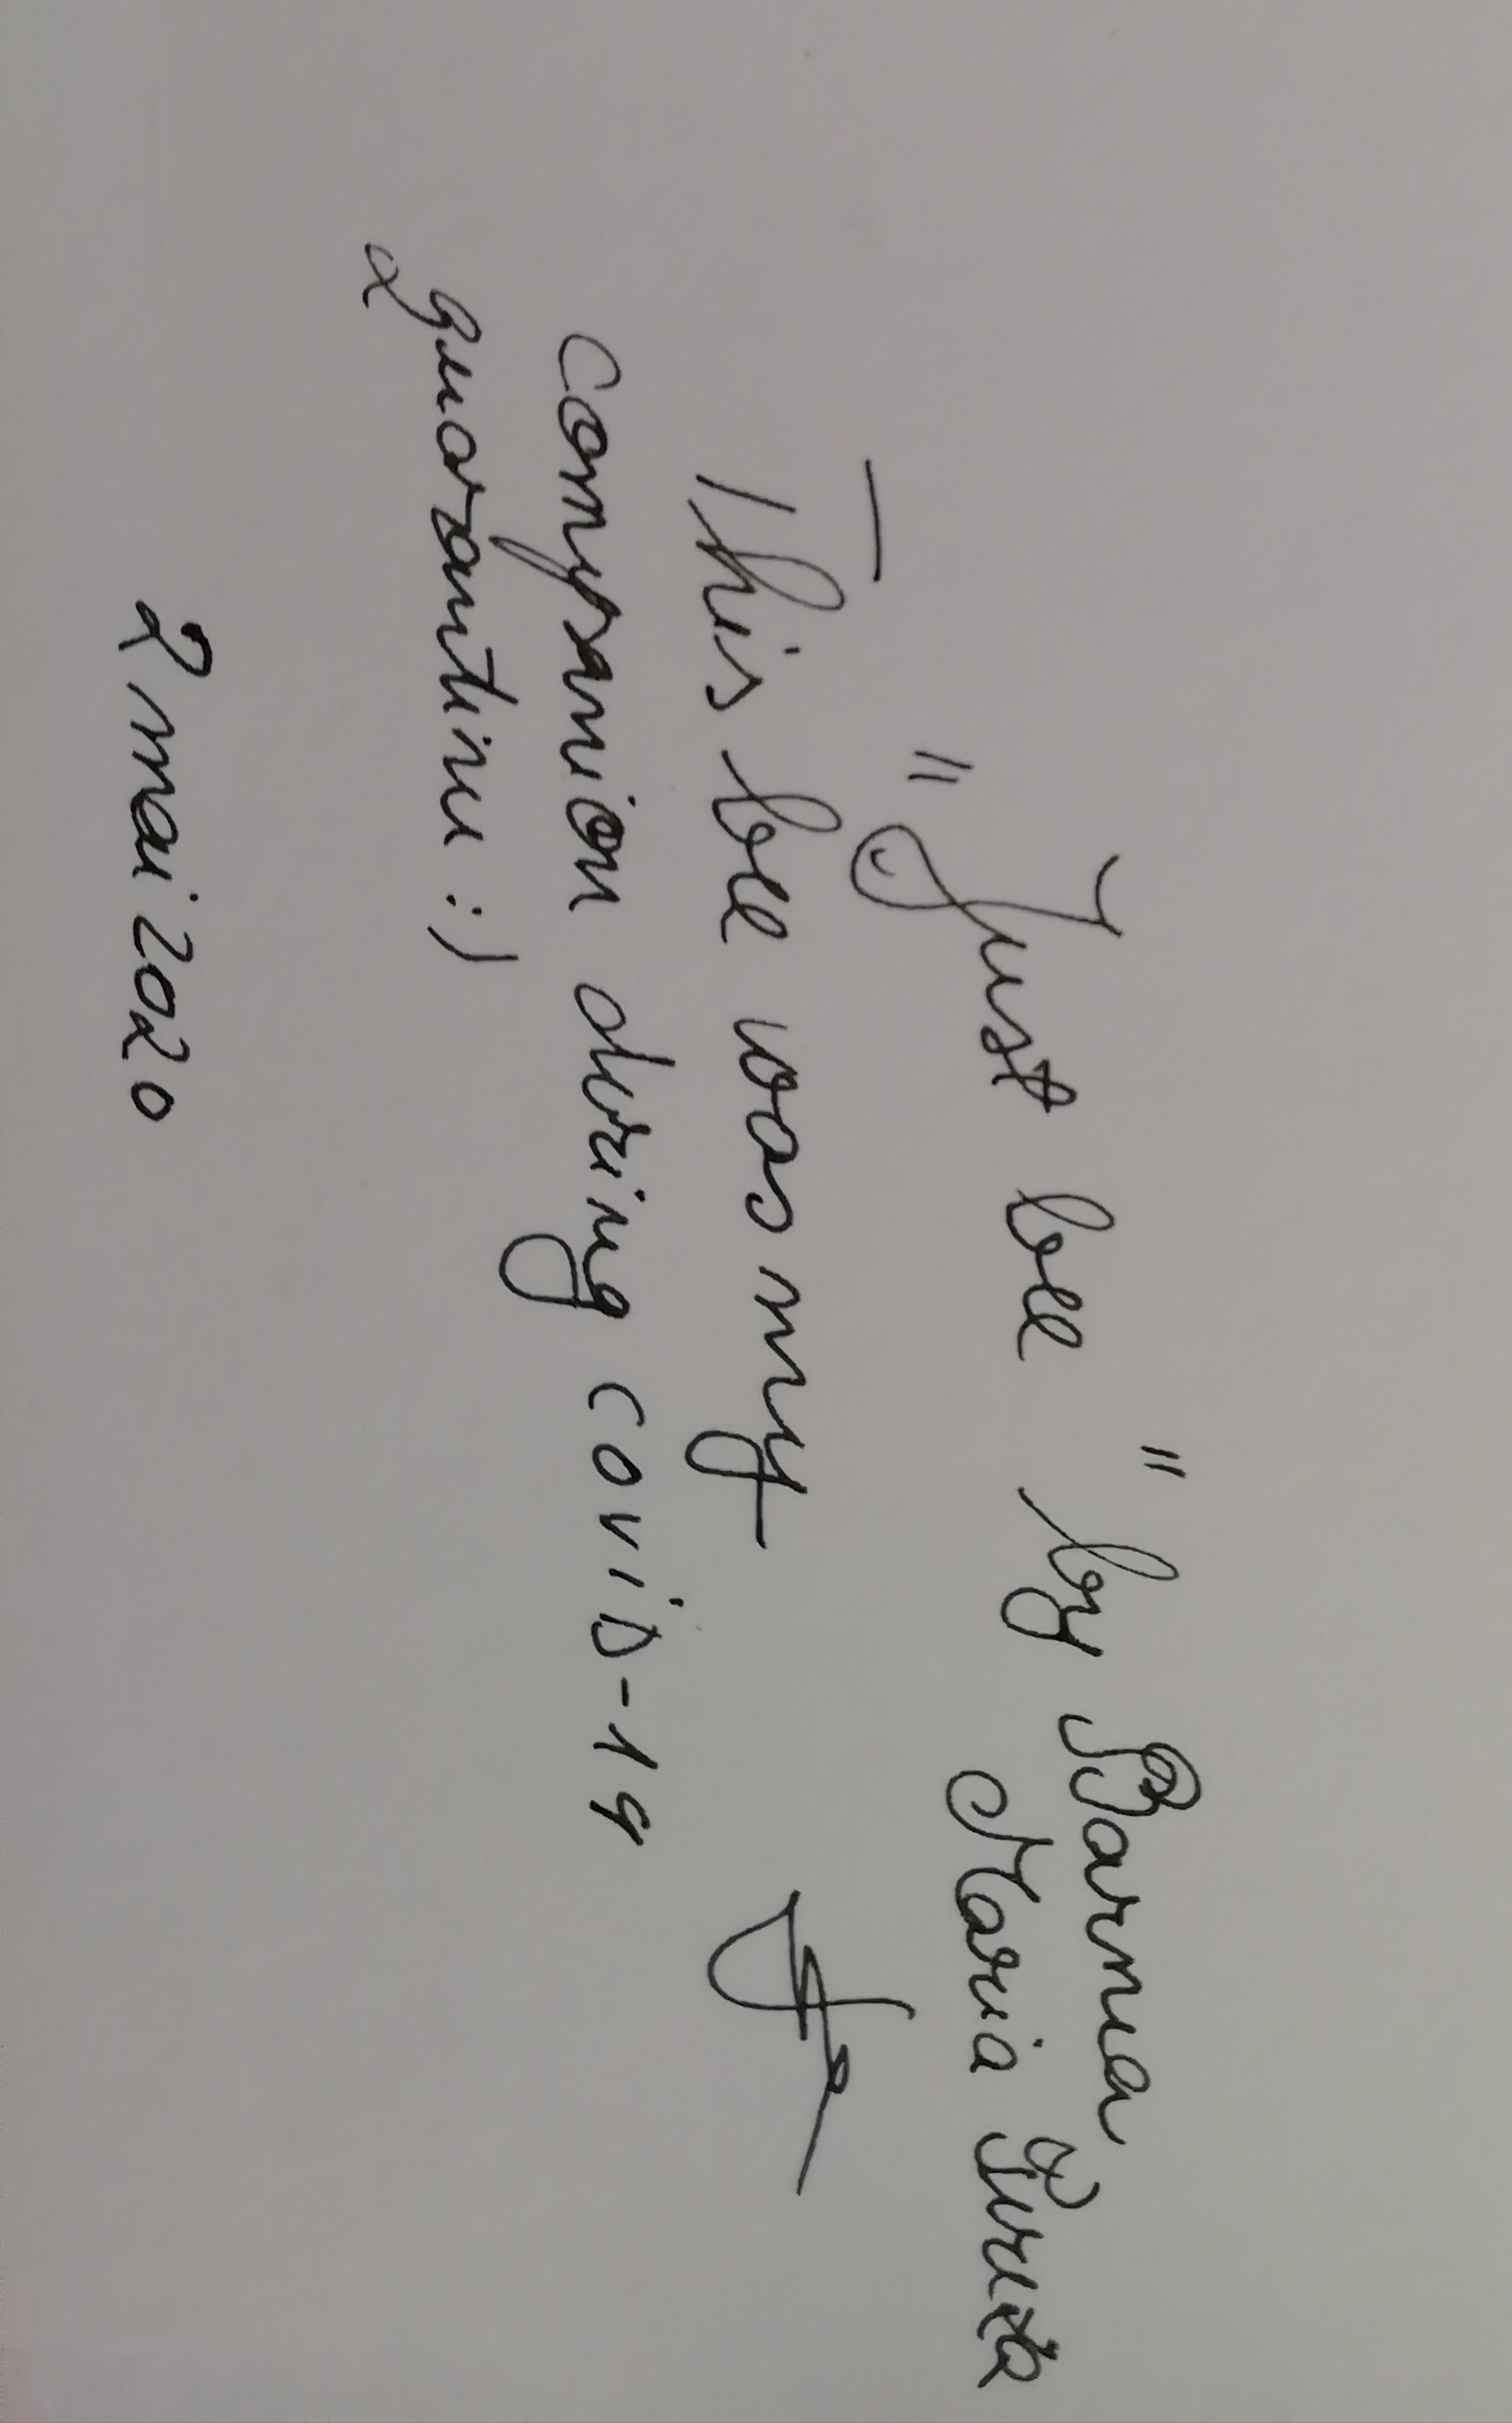 "Just bee" by Barna
Maria Puiu
This bee was my
companion during COVID-19
quarantine :)
2 mai 2020